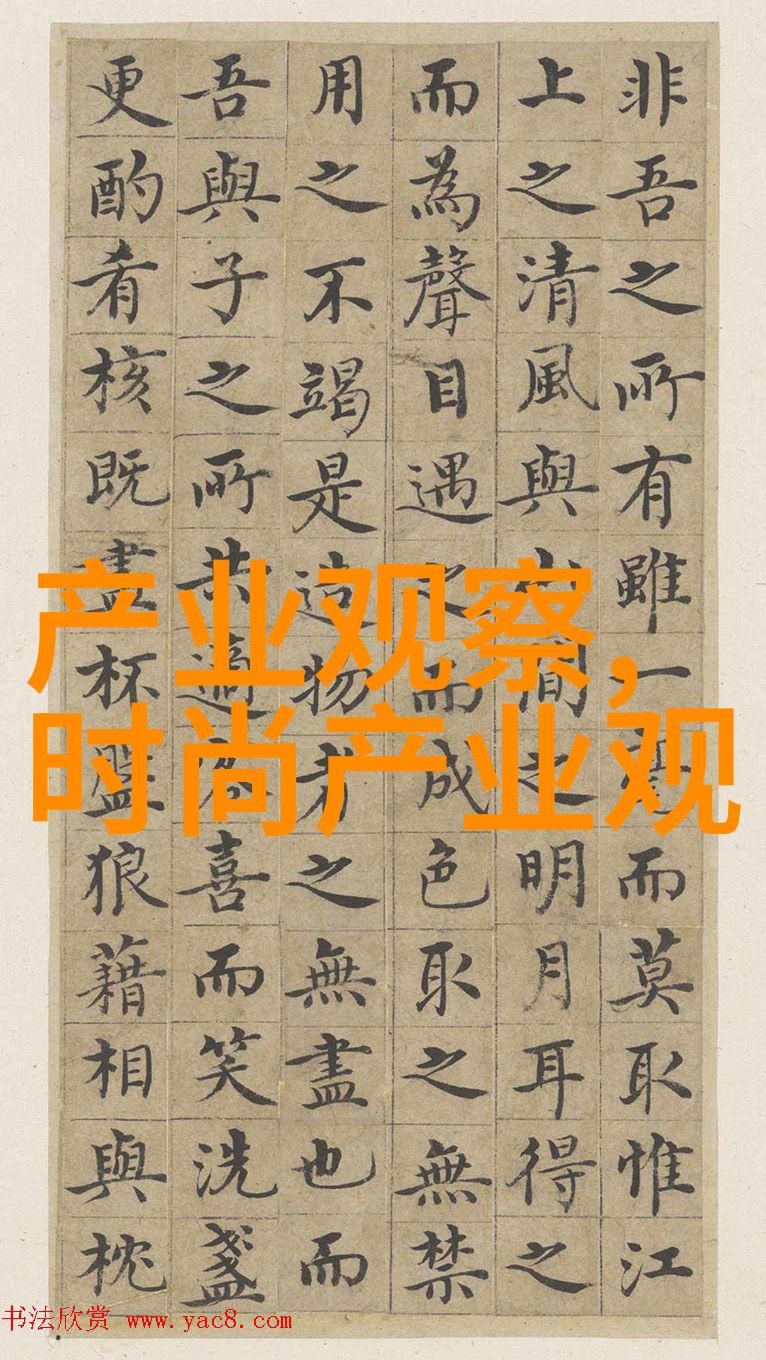 非吾之所有雖一毫而莫取惟江
上之清風與山間之明月耳得之
而為聲目遇之而成色取之無禁
用之不竭是造物者之無盡也而
吾與子之所共適客喜而笑洗盞
更酌肴核既盡杯盤狼藉相與枕
产业观察,
时尚产业观
书法欣赏 www.yac8.com